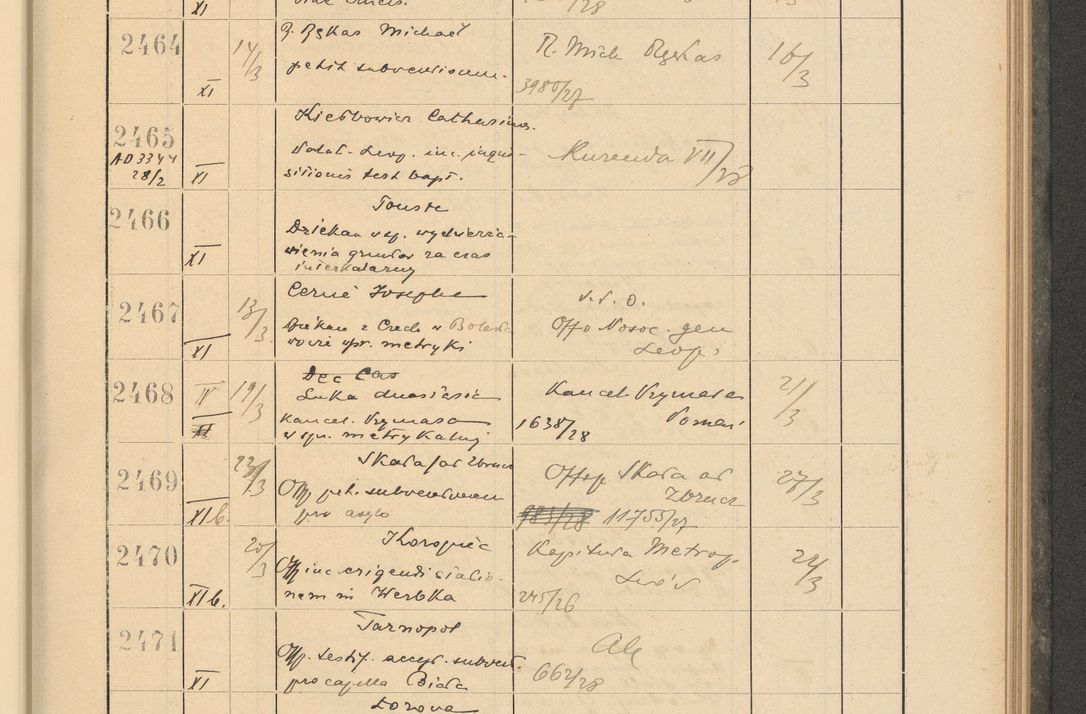 XI
/28
2464
14/3
P. Rękas Michael
petit subventionem.
XI
R. Mich Rękas
3980/27
16/3
2465
AD 3344
28/2
XI
Kiełbowicz Catharina.
Natal. Leop. inc. inqui-
sitionis test bapt.
Kurenda VII/28
2466
XI
Touste
Dziekan wsp. wydzierża-
wienia gruntów za czas
interkalarny
2467
13/3
XI
Cerné Josephe
Dziekan z Czech w
spr. metryki
V. V. O.
Offo Nosoc. gen
Leop.
2468
IV
XI
19/3
Dec Cas
Luka
Kancel. Prymasa
w spr. metrykalnej
Kancel Prymasa
1638/28
Poznań
21/3
2469
23/3
XI b.
Skała ad Zbrucz
Off pet. subventionem
pro asylo
Offop Skała ad
Zbrucz
983/28 11755/27
27/3
2470
20/3
XI b.
Koropiec
Off inc erigendi statio-
nem in Werbka
Kapituła Metrop.
Lwów
245/26
22/3
2471
XI
Tarnopol
Off. testif. accept. subvent.
pro capella Biała
Ale
662/28
Łozowa